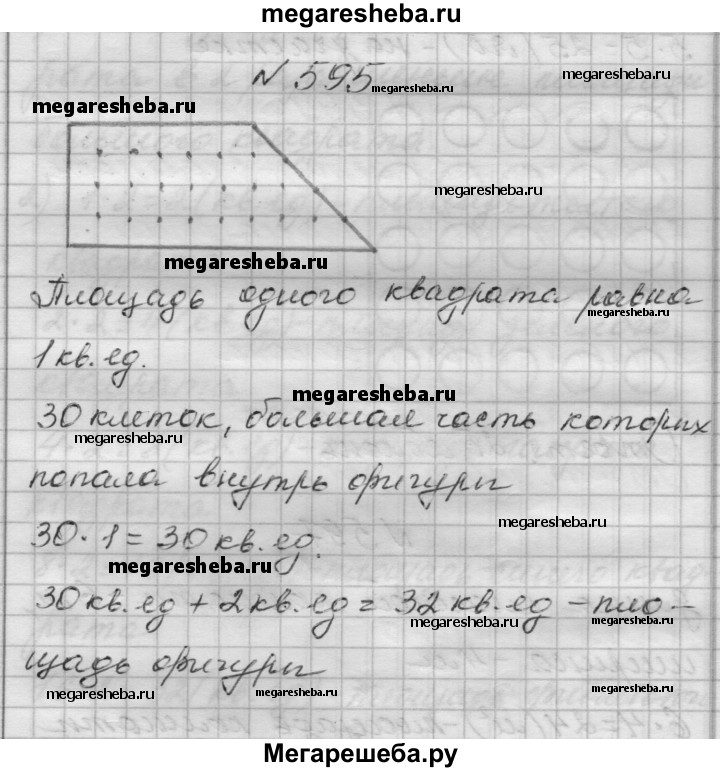 megaresheba.ru
N 595
megaresheba.ru
megaresheba.ru
megaresheba.ru
megaresheba.ru
megaresheba.ru
Площадь одного квадрата равна
megaresheba.ru
1 кв. ед.
megaresheba.ru
30 клеток, большая часть которых
megaresheba.ru
попала внутрь фигуры
megaresheba.ru
30 · 1 = 30 кв. ед.
megaresheba.ru
30 кв. ед + 2 кв. ед = 32 кв. ед - пло-
megaresheba.ru
megaresheba.ru
щадь фигуры
megaresheba.ru
megaresheba.ru
megaresheba.ru
Мегарешеба.ру